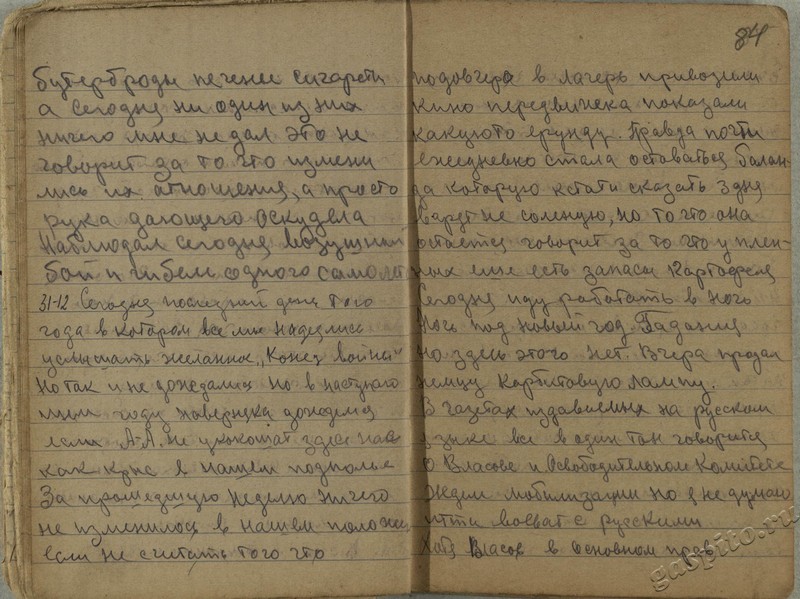 бутерброды печенье сигареты
а сегодня ни один из них
ничего мне не дал это не
говорит за то что измени
лись их отношения, а просто
рука дающего оскудела
Наблюдал сегодня воздушный
бой и гибель одного самолет
31-12 Сегодня последний день того
года в котором все мы надеялись
услышать желанное "Конец войны"
Но так и не дождались но в наступаю
щем году наверняка дождемся
если А-А. не укокошат здесь нас
как крыс в нашем подполье
За прошедшую неделю ничего
не изменилось в нашем положен
если не считать того что
84
подовчера в лагерь привозили
кино передвижка показали
какуюто ерунду. Правда почти
ежедневно стала оставаться балан-
да которую кстати сказать 3 дня
варят не соленую, но то что она
остается говорит за то что у плен-
ных еще есть запасы картофеля
Сегодня иду работать в ночь
Ночь под новый год. Гадания
но здесь этого нет. Вчера продал
немцу карбитовую лампу.
В газетах издаваемых на русском
языке все в один тон говорится
о Власове и Освободительном Комитете
Ждем мобилизации но я не думаю
итти воеват с русскими
Хотя Власов в основном прав
gaspito.ru